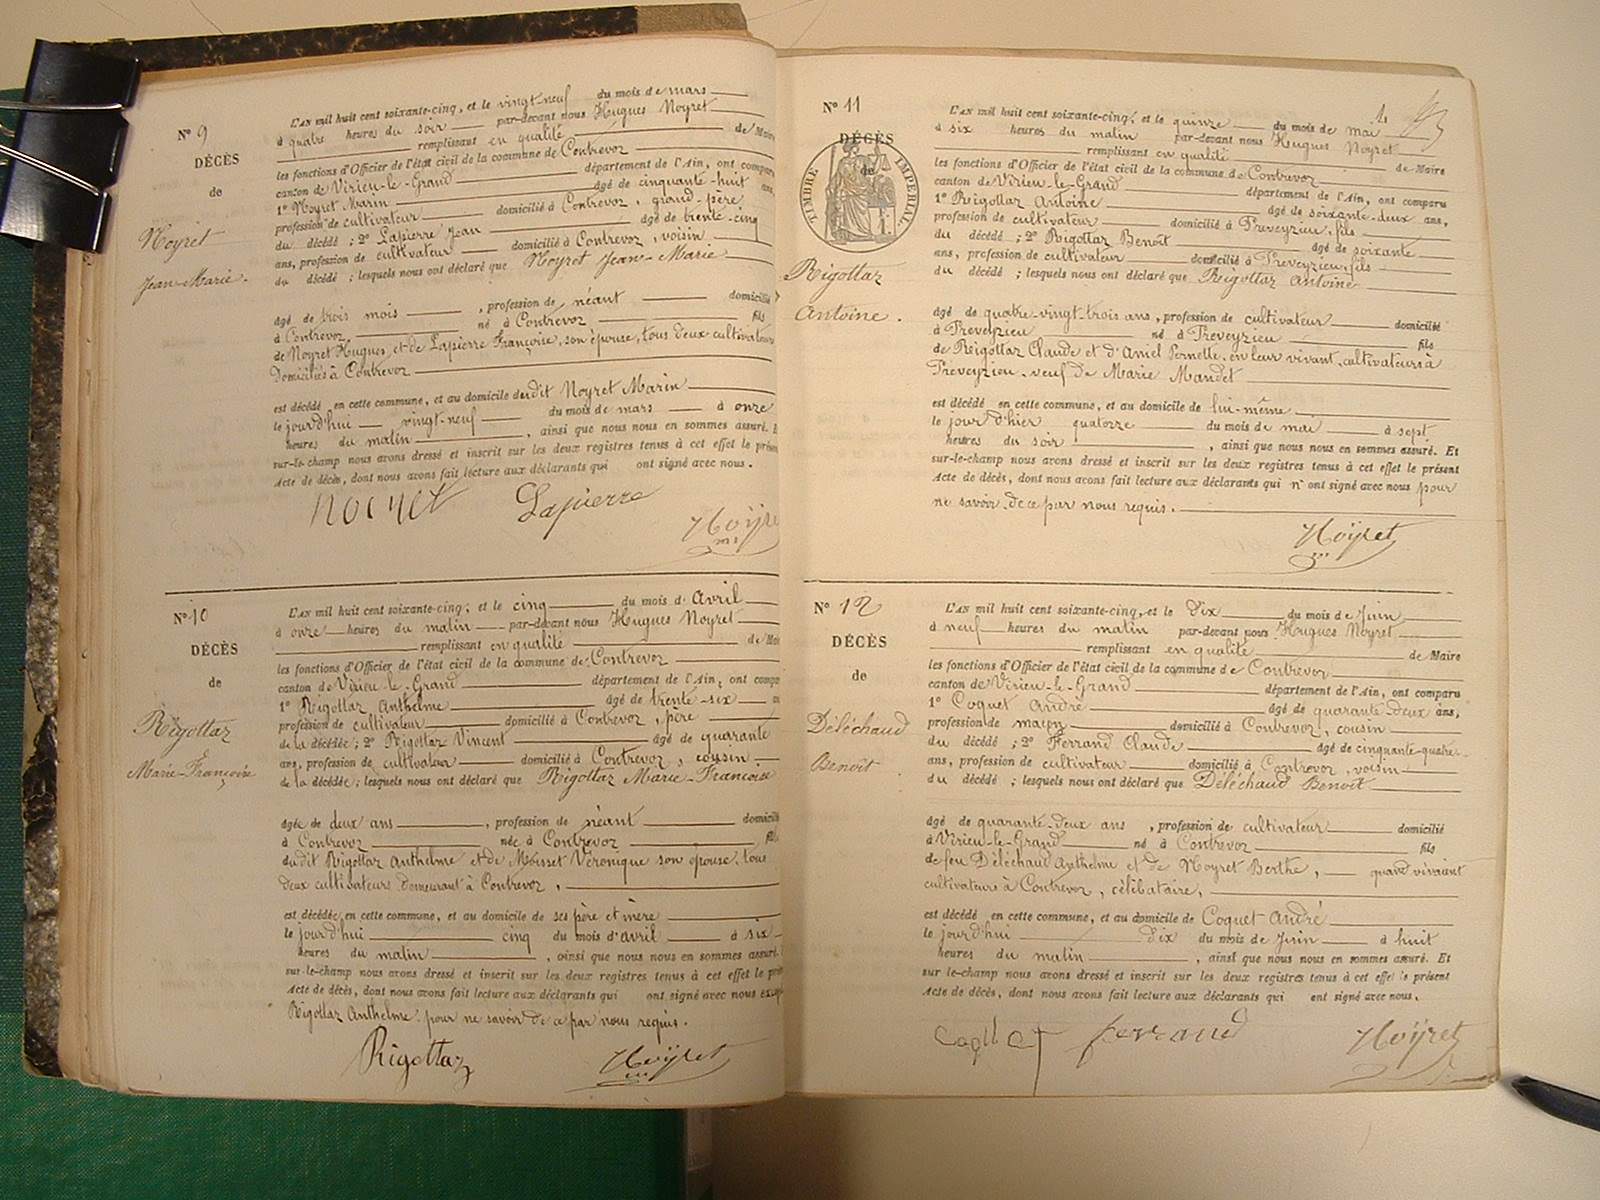 N° 9
DÉCÈS
de
Noyret
Jean-Marie.
L'AN mil huit cent soixante-cinq, et le vingt-neuf du mois de mars
à quatre heures du soir par-devant nous Hugues Noyret
remplissant en qualité de Maire
les fonctions d'Officier de l'état civil de la commune de Contrevoz
canton de Virieu-le-Grand département de l'Ain, ont comparu
1° Noyret Marin âgé de cinquante-huit ans,
profession de cultivateur domicilié à Contrevoz, grand-père
du décédé ; 2° Lapierre Jean âgé de trente-cinq
ans, profession de cultivateur domicilié à Contrevoz, voisin
du décédé ; lesquels nous ont déclaré que Noyret Jean-Marie
âgé de trois mois, profession de néant domicilié
à Contrevoz né à Contrevoz fils
de Noyret Hugues et de Lapierre Françoise, son épouse, tous deux cultivateurs
domiciliés à Contrevoz
est décédé en cette commune, et au domicile dudit Noyret Marin
le jourd'hui vingt-neuf du mois de mars à onze
heures du matin, ainsi que nous nous en sommes assuré. E
sur-le-champ nous avons dressé et inscrit sur les deux registres tenus à cet effet le présen
Acte de décès, dont nous avons fait lecture aux déclarants qui ont signé avec nous.
noiret Lapierre Noÿre
N° 10
DÉCÈS
de
Rigottaz
Marie-Françoise
L'AN mil huit cent soixante-cinq, et le cinq du mois d'Avril
à onze heures du matin par-devant nous Hugues Noyret
remplissant en qualité de Mai
les fonctions d'Officier de l'état civil de la commune de Contrevoz
canton de Virieu-le-Grand département de l'Ain, ont compa
1° Rigottaz Anthelme âgé de trente-six an
profession de cultivateur domicilié à Contrevoz, père
de la décédée ; 2° Rigottaz Vincent âgé de quarante
ans, profession de cultivateur domicilié à Contrevoz, cousin
de la décédée ; lesquels nous ont déclaré que Rigottaz Marie-Françoise
âgée de deux ans, profession de néant domicili
à Contrevoz née à Contrevoz fil
dudit Rigottaz Anthelme et de Monset Véronique son épouse, tous
deux cultivateurs demeurant à Contrevoz,
est décédée en cette commune, et au domicile de ses père et mère
le jourd'hui cinq du mois d'avril à six
heures du matin, ainsi que nous nous en sommes assuré.
sur-le-champ nous avons dressé et inscrit sur les deux registres tenus à cet effet le prés
Acte de décès, dont nous avons fait lecture aux déclarants qui ont signé avec nous excep
Rigottaz Anthelme, pour ne savoir de ce par nous requis.
Rigottaz Noÿret
N° 11
DÉCÈS
de
TIMBRE IMPERIAL
Rigottaz
Antoine.
L'AN mil huit cent soixante-cinq, et le quinze du mois de mai
à six heures du matin par-devant nous Hugues Noyret
remplissant en qualité de Maire
les fonctions d'Officier de l'état civil de la commune de Contrevoz
canton de Virieu-le-Grand département de l'Ain, ont comparu
1° Rigottaz Antoine âgé de soixante-deux ans,
profession de cultivateur domicilié à Preveyzieu, fils
du décédé ; 2° Rigottaz Benoît âgé de soixante
ans, profession de cultivateur domicilié à Preveyzieu, fils
du décédé ; lesquels nous ont déclaré que Rigottaz Antoine
âgé de quatre-vingt-trois ans, profession de cultivateur domicilié
à Preveyzieu né à Preveyzieu fils
de Rigottaz Claude et d'Amiel Pernette, en leur vivant, cultivateurs à
Preveyzieu, veuf de Marie Mandet
est décédé en cette commune, et au domicile de lui-même
le jour d'hier quatorze du mois de mai à sept
heures du soir, ainsi que nous nous en sommes assuré. Et
sur-le-champ nous avons dressé et inscrit sur les deux registres tenus à cet effet le présent
Acte de décès, dont nous avons fait lecture aux déclarants qui n'ont signé avec nous pour
ne savoir de ce par nous requis.
Noÿret
N° 12
DÉCÈS
de
Déléchaud
Benoît
L'AN mil huit cent soixante-cinq, et le dix du mois de Juin
à neuf heures du matin par-devant nous Hugues Noyret
remplissant en qualité de Maire
les fonctions d'Officier de l'état civil de la commune de Contrevoz
canton de Virieu-le-Grand département de l'Ain, ont comparu
1° Coquet André âgé de quarante-deux ans,
profession de maçon domicilié à Contrevoz, cousin
du décédé ; 2° Ferrand Claude âgé de cinquante-quatre
ans, profession de cultivateur domicilié à Contrevoz, voisin
du décédé ; lesquels nous ont déclaré que Déléchaud Benoît
âgé de quarante-deux ans, profession de cultivateur domicilié
à Virieu-le-Grand né à Contrevoz fils
de feu Déléchaud Anthelme et de Noyret Berthe, quand vivaient
cultivateurs à Contrevoz, célibataire,
est décédé en cette commune, et au domicile de Coquet André
le jourd'hui dix du mois de Juin à huit
heures du matin, ainsi que nous nous en sommes assuré. Et
sur-le-champ nous avons dressé et inscrit sur les deux registres tenus à cet effet le présent
Acte de décès, dont nous avons fait lecture aux déclarants qui ont signé avec nous.
Coquet ferrand Noÿret